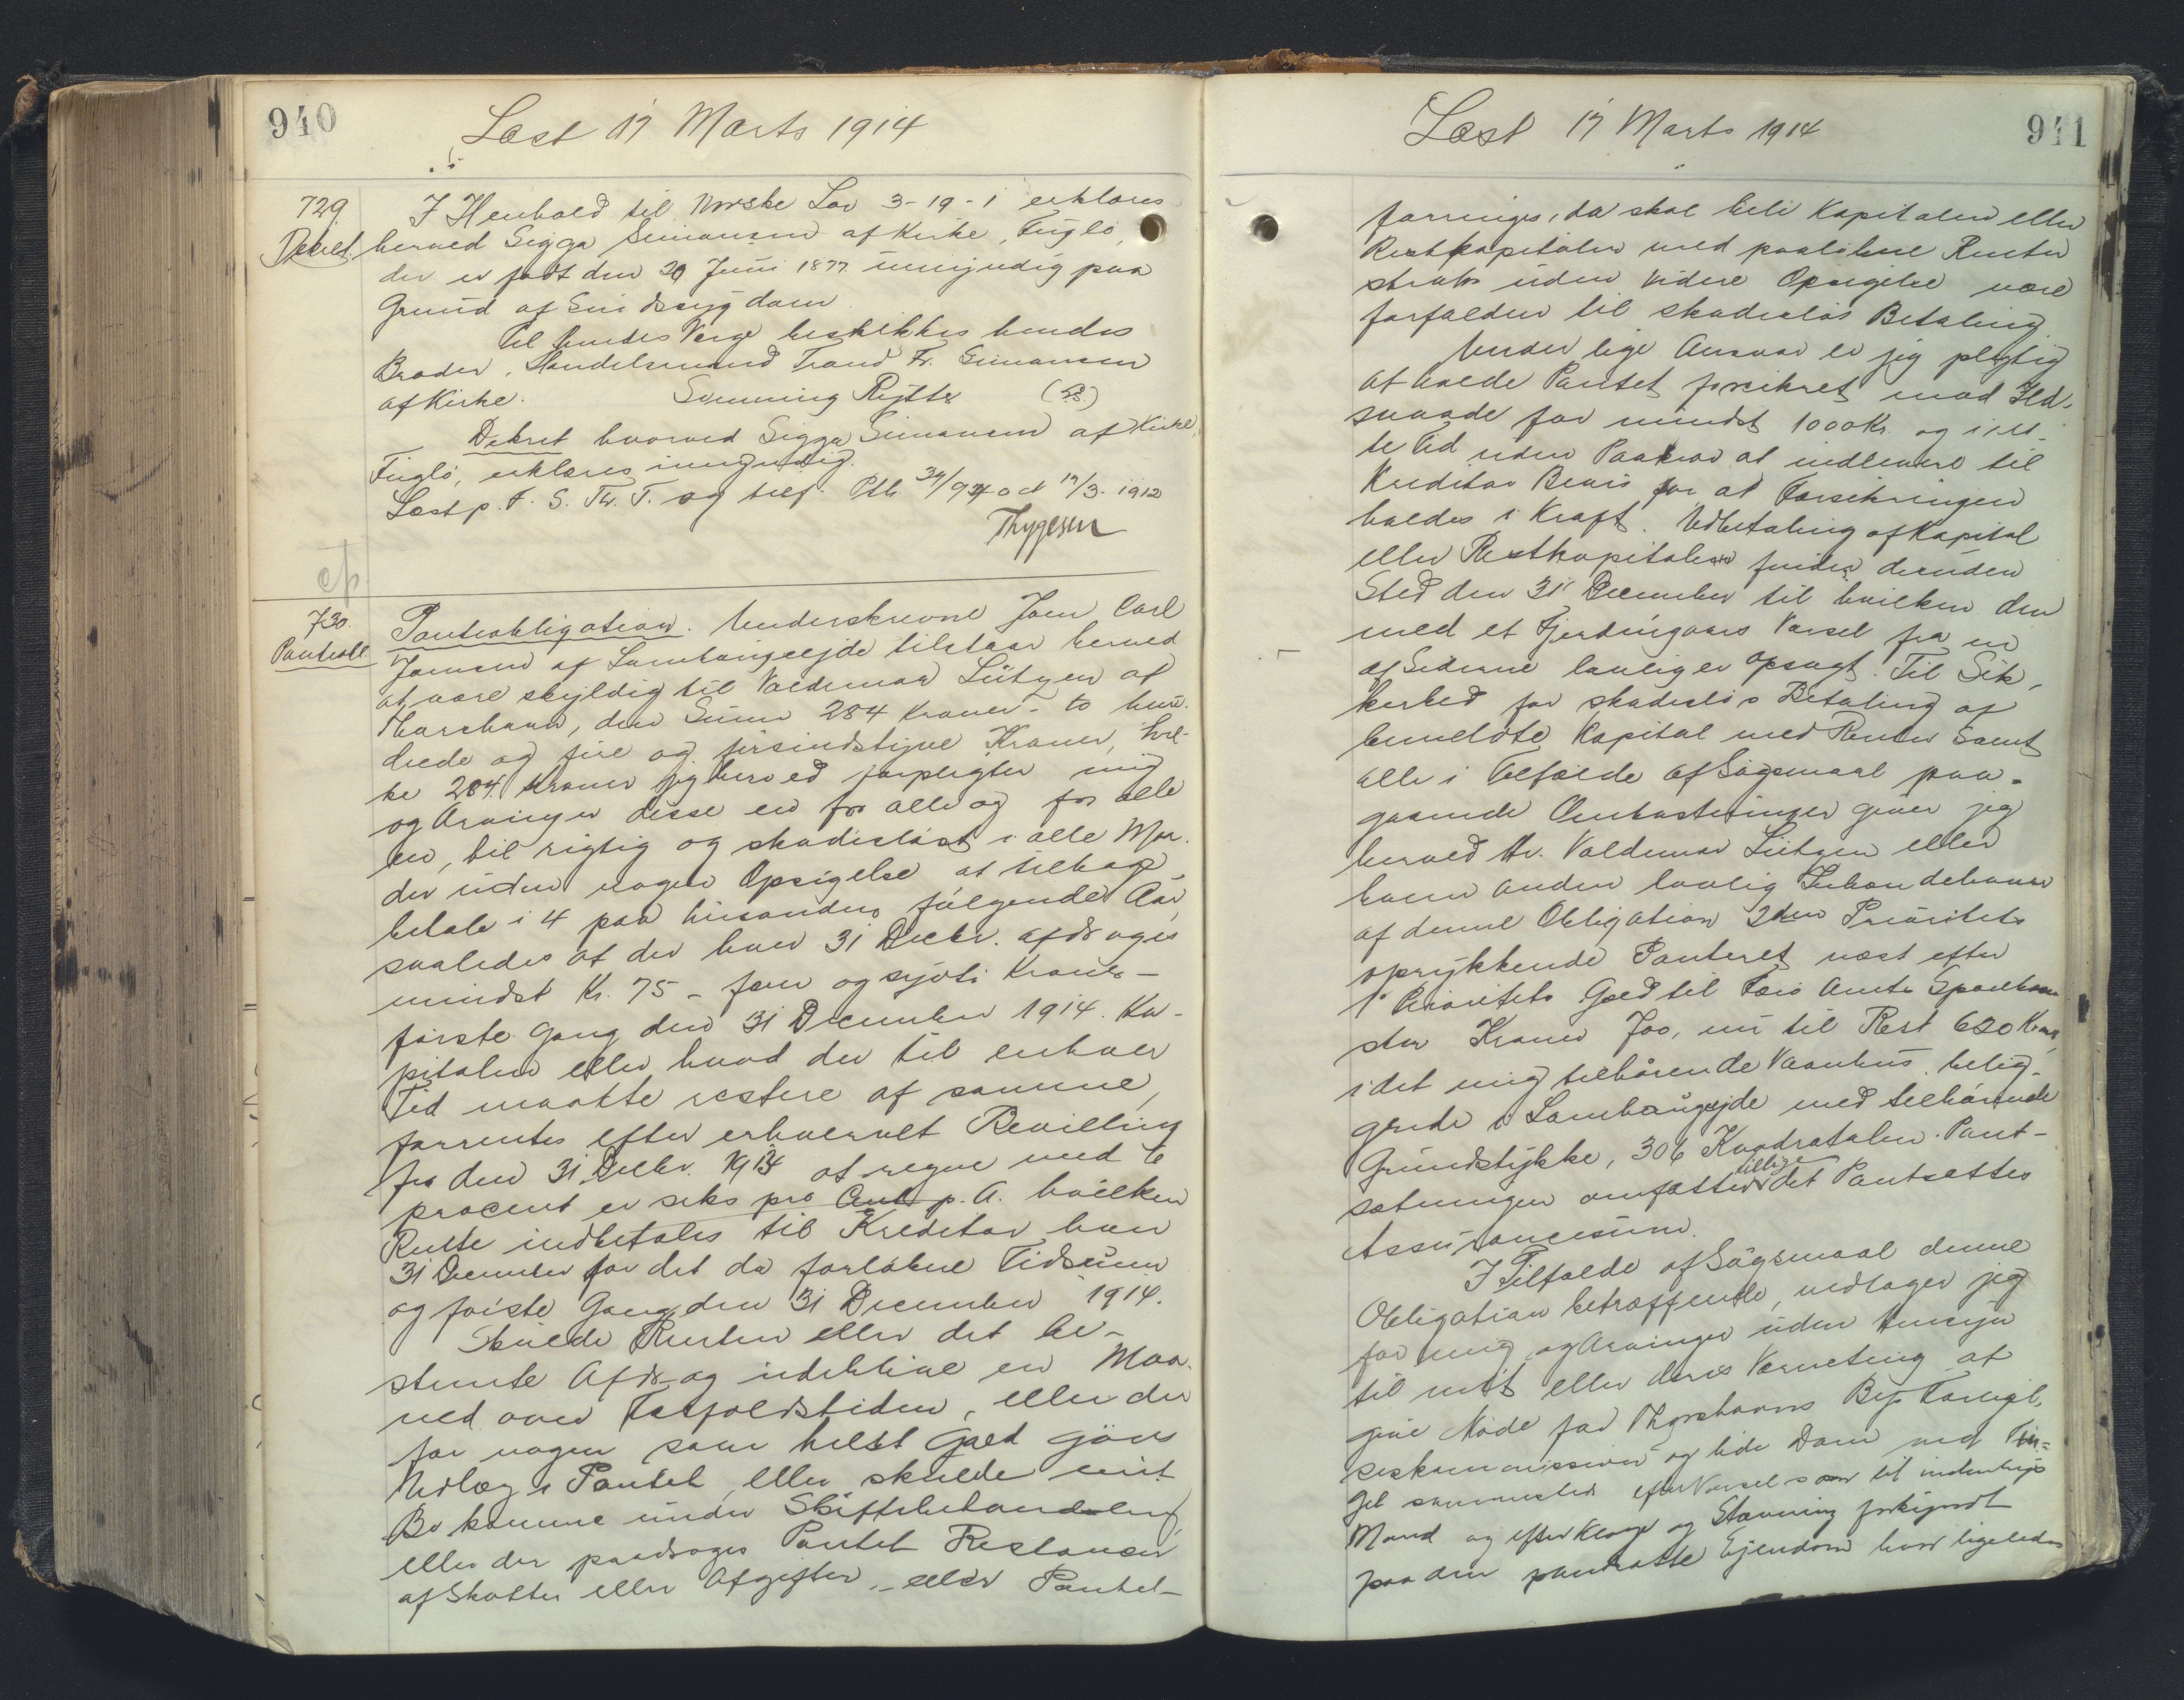 940
Læst 17 Marts 1914
729.
Dekret.
I Henhold til Norske Lov 3-19-1 erklæres
herved Sigga Simonsen af Kirke, Fuglö,
der er født den 20 Juni 1877 umyndig paa
Grund af Sindssygdom.
Til hendes Værge beskikkes hendes
Broder, Handelsmand Trond Fr. Simonsen
af Kirke. Semming Rytter (L.S.)
Dekret hvorved Sigga Simonsen af Kirke,
Fuglö, erklæres umyndig.
Læst p. F. S. Th. T. og tilf. Ptb. og
Thygesen
730.
Panteobl.
Panteobligation. Underskrevne Joen Carl
Joensen af Lambareejde tilstaar herved
at være skyldig til Valdemar Lützen af
Thorshavn, den Sum 284 Kroner - to hun-
drede og fire og firsindstyve Kroner, hvil-
ke 284 Kroner jeg herved forpligter mig
og Arvinger disse en for alle og for alle
en, til rigtig og skadesløst i alle Maa-
der uden nogen Opsigelse at tilbage-
betale i 4 paa hinanden følgende Aar,
saaledes at der hver 31 Decbr. afdrages
mindst Kr. 75 - fem og syvti Kroner -
første Gang den 31 December 1914. Ka-
pitalen eller hvad der til enhver
Tid maatte restere af samme,
forrentes efter erhvervet Bevilling
fra den 31 Decbr. 1913 at regne med 6
procent er seks pro Cent p. A. hvilken
Rente indbetales til Kreditor hver
31 December for det da forløbne Tidsrum
og første Gang den 31 December 1914.
Skulde Renten eller det be-
stemte Afdrag udeblive en Maa-
ned over Forfaldstiden, eller der
for nogen som helst Gæld gøres
Udlæg i Pantet, eller skulde mit
Bo komme under Skiftebehandling
eller der paadrages Pantet Restancer
af Skatter eller Afgifter, - eller Pantet
941
Læst 17 Marts 1914
forringes, da skal hele Kapitalen eller
Restkapitalen med paaløbne Renter
straks uden videre Opsigelse være
forfalden til skadesløs Betaling.
Under lige Ansvar er jeg pligtig
at holde Pantet forsikret mod Ild-
svaade for mindst 1000 Kr. og i ret-
te Tid uden Paakrav at indlevere til
Kreditor Bevis for at Forsikringen
holdes i Kraft. Udbetaling af Kapital
eller Restkapitalen finder desuden
Sted den 31 December til hvilken den
med et Fjerdingaars Varsel fra en
af Siderne lovlig er opsagt. Til Sik-
kerhed for skadesløs Betaling af
bemeldte Kapital med Renter samt
alle i Tilfælde af Søgsmaal paa-
gaaende Omkostninger giver jeg
herved Hr. Valdemar Lützen eller
hvem anden lovlig Ihændehaver
af denne Obligation 2den Prioritets
oprykkende Panteret næst efter
1' Prioritets Gæld til Færö Amts Sparkasse
stor Kroner 700, nu til Rest 620 Kroner,
i det mig tilhørende Vaanhus belig-
gende i Lambareejde med tilhørende
Grundstykke, 306 Kvadratalen. Pant-
sætningen omfatter tillige det Pantsattes
Assurancesum.
I Tilfælde af Søgsmaal denne
Obligation betræffende, vedtager jeg
for mig og Arvinger uden Hensyn
til mit eller deres Værneting at
give Møde for Thorshavns Bys Forligel-
seskommission og lide Dom ved Tin-
get sammesteds efter Varsel som til indenbys
Mand og efter Klage og Stævning forkyndt
paa den pantsatte Ejendom hvor ligeledes